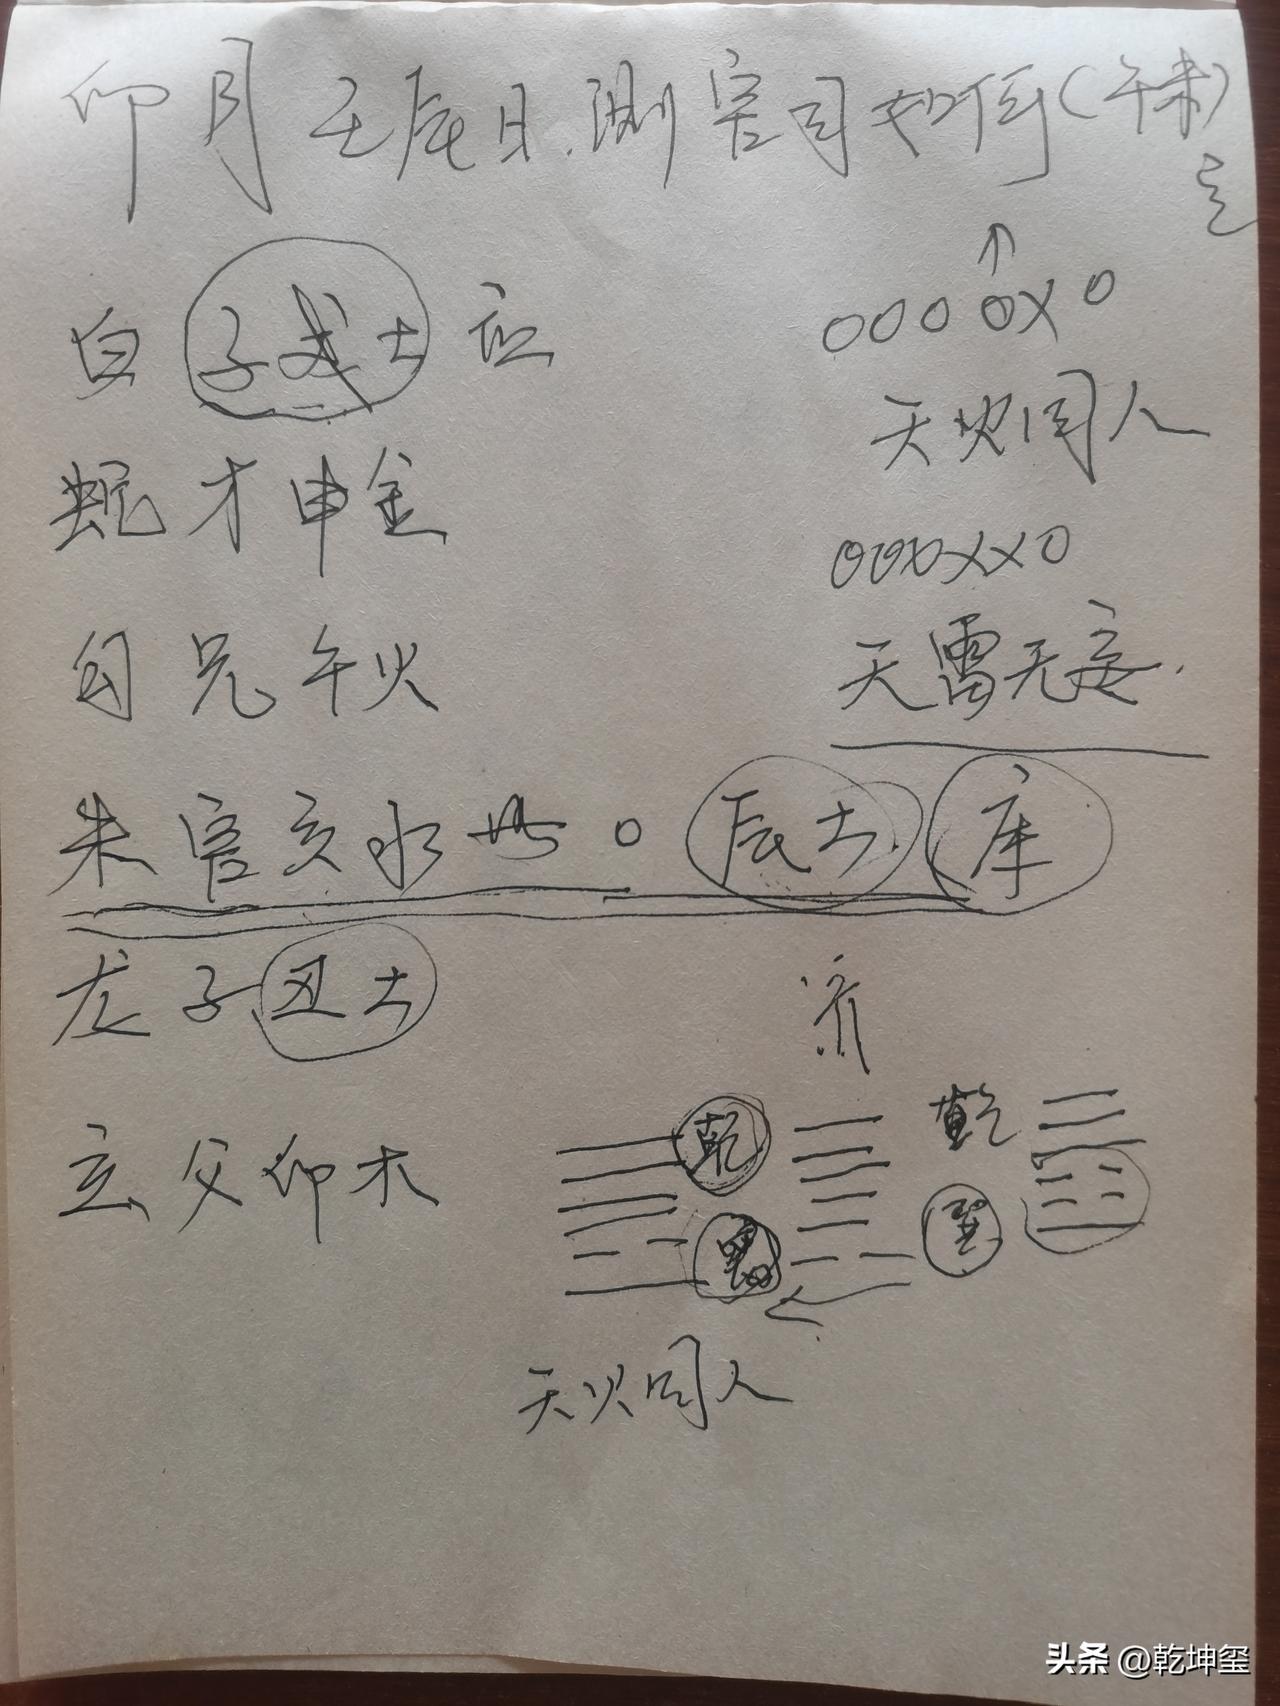 卯月壬辰日.测官司如何(午未)
空
白 子戌土 应
000 0X0
天火同人
蛇 才申金
000XX0
勾 兄午火
天雷无妄.
朱 官亥水世 0 辰土 库
龙 子丑土
济
乾
乾
玄 父卯木
天火同人
头条 @乾坤玺